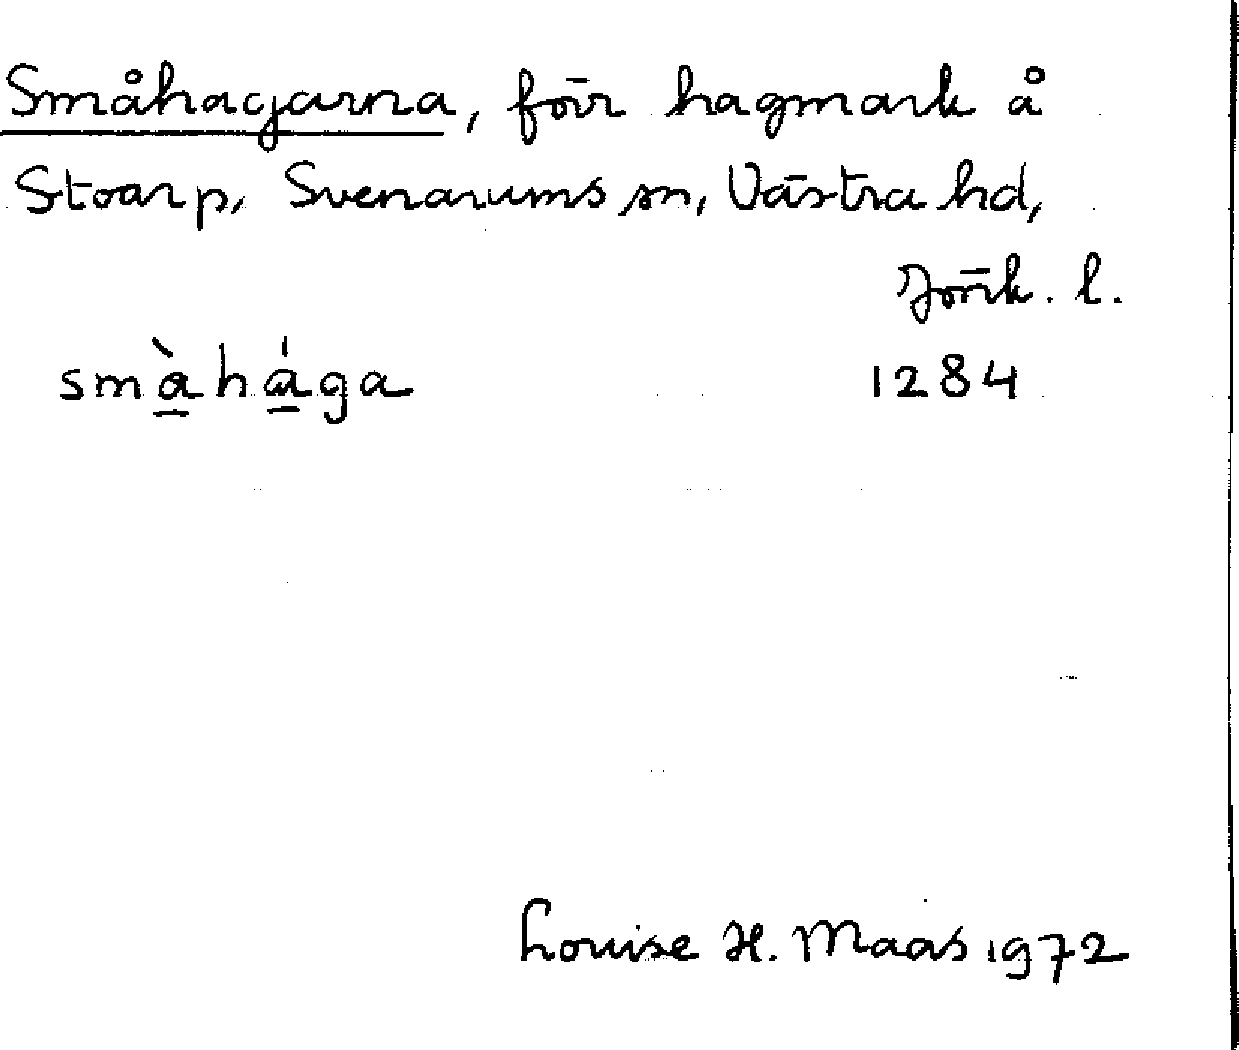 Småhagarna, förr hagmark å
Stoarp, Svenarums sn, Västra hd,
Jönk. l.
smà̱há̱ga 1284
Louise H. Maas 1972